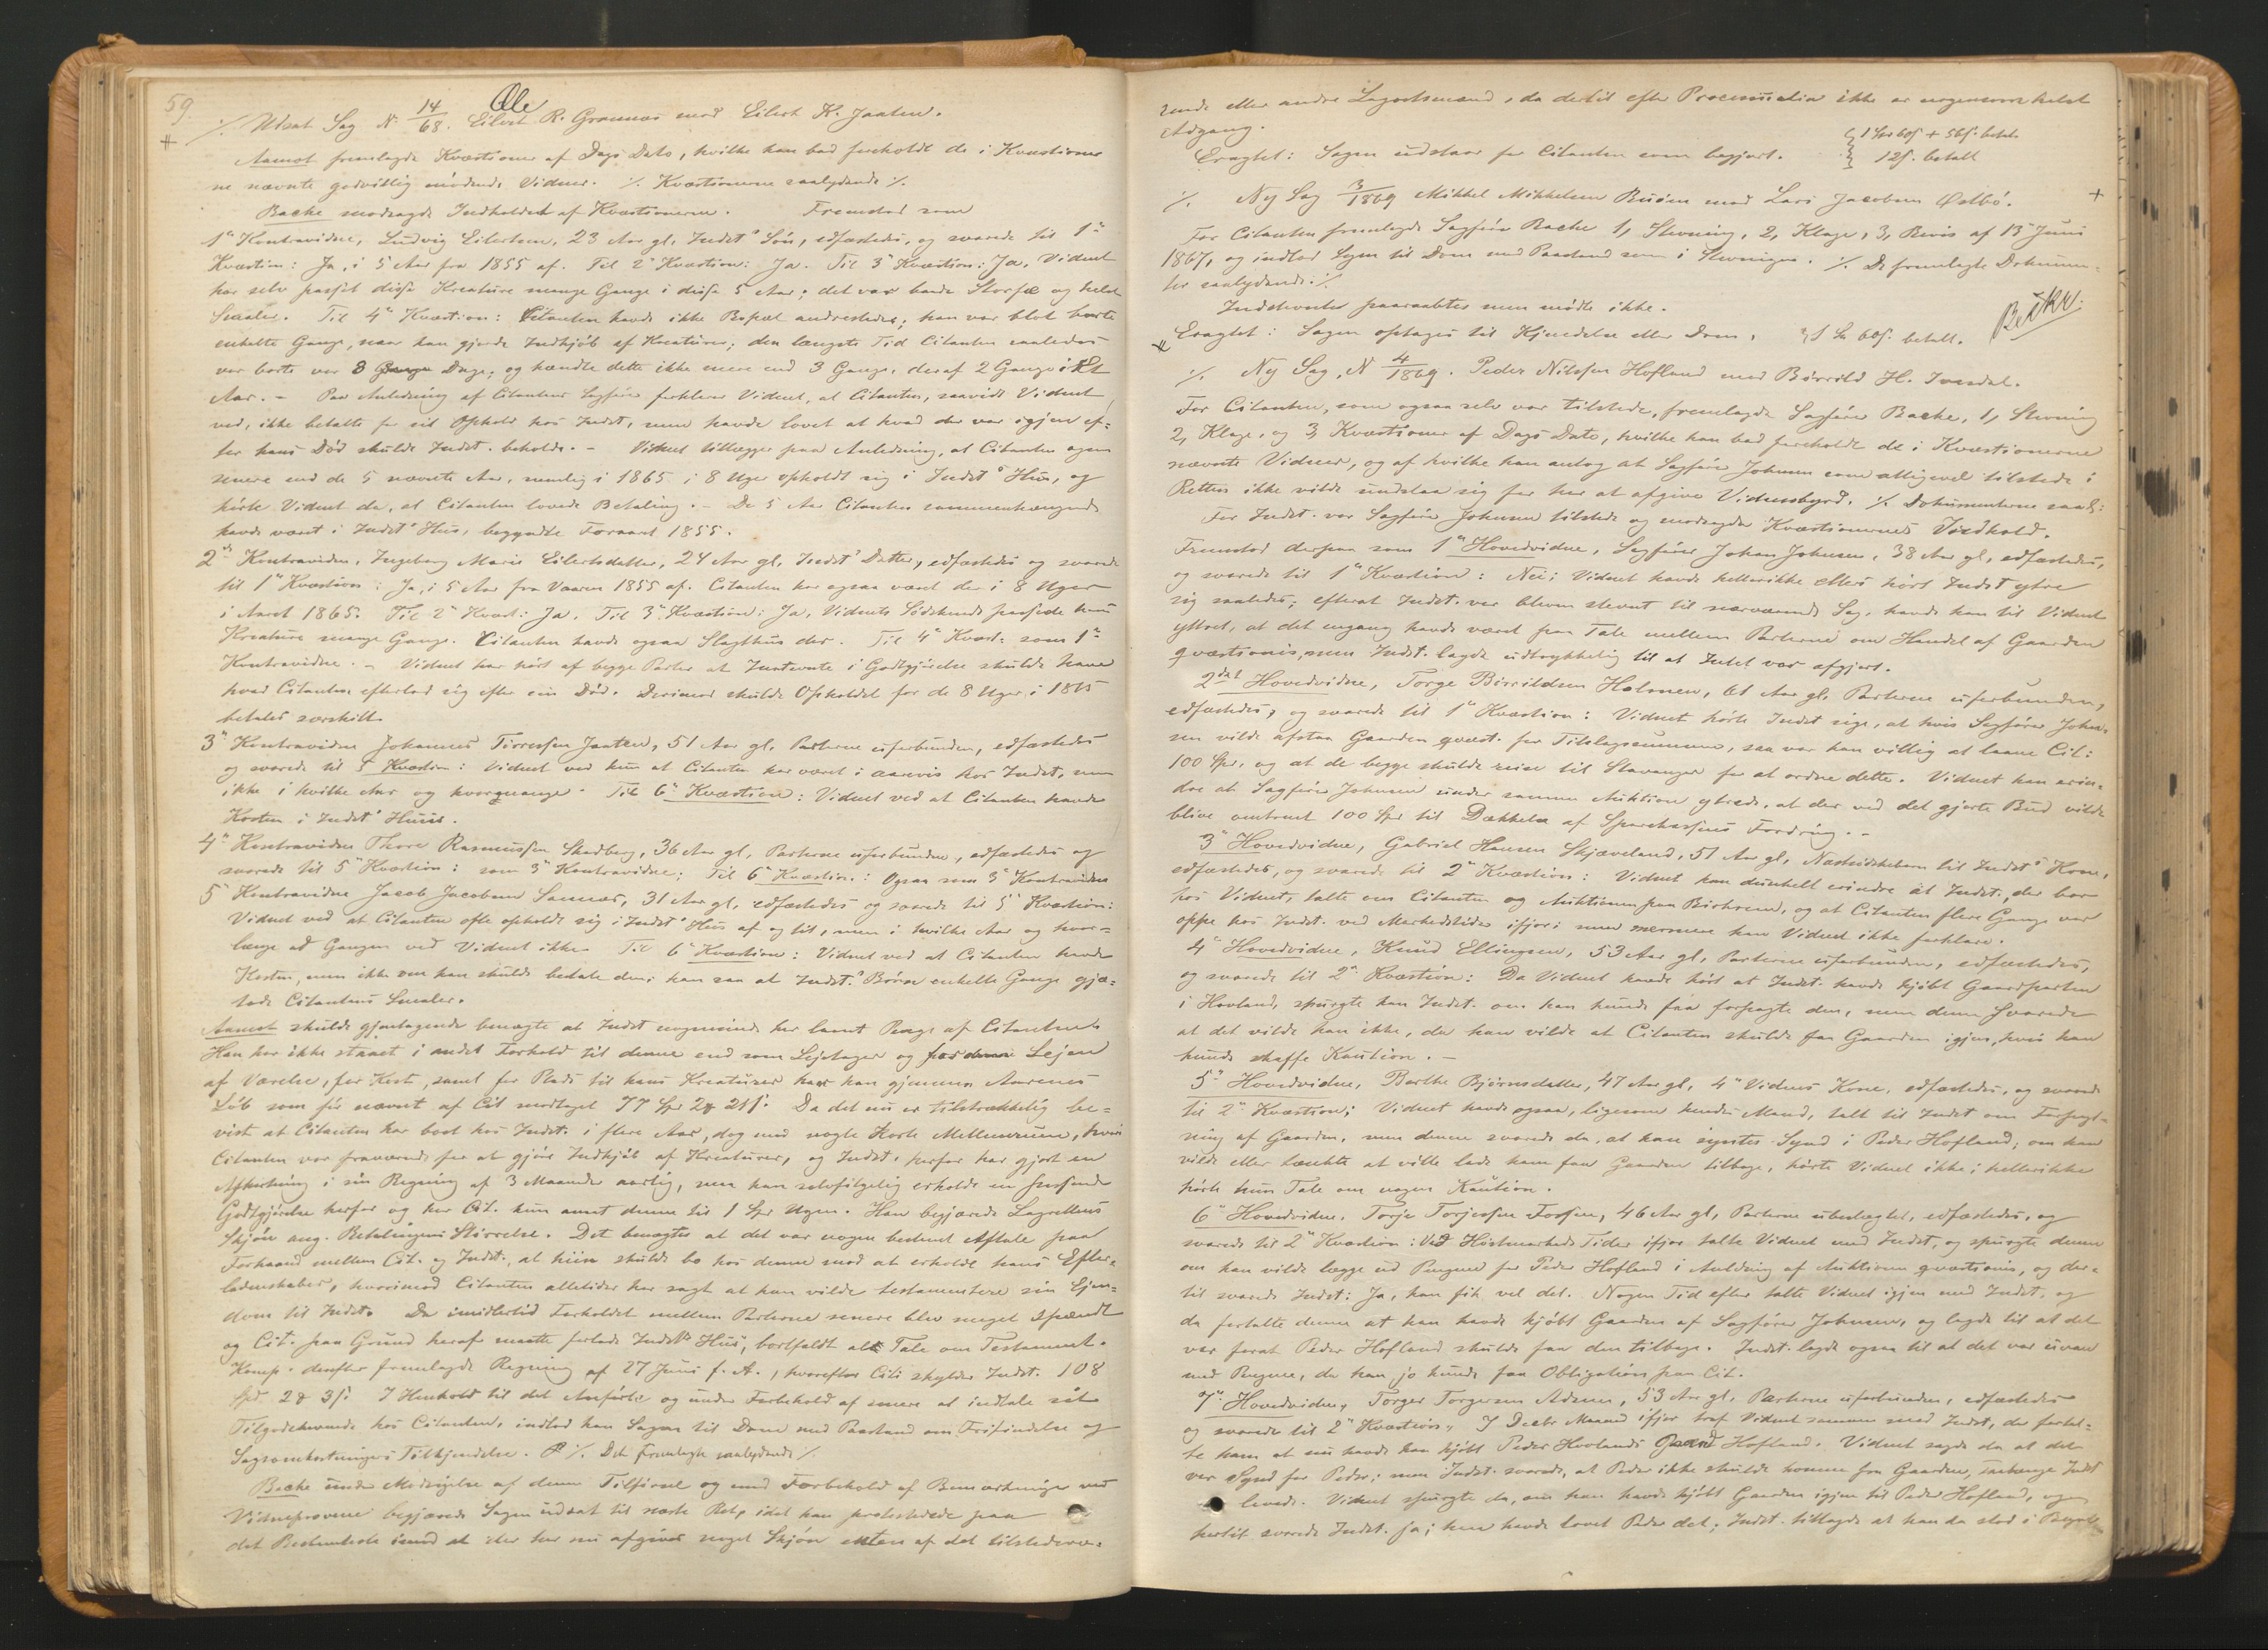 59.
⁒ Udsat Sag N. 14/68. Ole Eilert R. Grannæs mod Eilert K. Jaaten.
Aamot fremlagde Kvæstioner af Dags Dato, hvilke han bad foreholdt de i Kvæstioner
ne nævnte godvillig mødende Vidner. ⁒ Kvæstionerne saalydende ⁒.
Bache modsagde Indholdet af Kvæstionerne. Fremstod som
1ste Kontravidne, Ludvig Eilertsen, 23 Aar gl. Indst.s Søn, edfæstedes, og svarede til 1ste
Kvæstion: Ja, i 5 Aar fra 1855 af. Til 2den Kvæstion: Ja. Til 3die Kvæstion: Ja, Vidnet
har selv passet disse Kreature mange Gange i disse 5 Aar; det var baade Storfæ og helst
Smaler. Til 4de Kvæstion: Citanten havde ikke Bopæl andrestedes; han var blot borte
enkelte Gange, naar han gjorde Indkjøb af Kreaturer; den længste Tid Citanten saaledes
var borte var 8 Dage; og hændte dette ikke mere end 3 Gange, deraf 2 Gange i Et
Aar. – Paa Anledning af Citantens Sagfører forklarer Vidnet, at Citanten, saavidt Vidnet
ved, ikke betalte for sit Ophold hos Indst., men havde lovet at hvad der var igjen ef=
ter hans Død skulde Indst. beholde. – Vidnet tillægger paa Anledning, at Citanten ogsaa
senere end de 5 nævnte Aar, nemlig i 1865 i 8 Uger opholdt sig i Indst.s Hus, og
hørte Vidnet da, at Citanten lovede Betaling. – De 5 Aar Citanten sammenhængende
havde været i Indst.s Hus, begyndte Foraaret 1855.
2det Kontravidne, Ingeborg Marie Eilertsdatter, 24 Aar gl. Indst.s Datter, edfæstedes og svarede
til 1ste Kvæstion: Ja, i 5 Aar fra Vaaren 1855 af. Citanten har ogsaa været der i 8 Uger
i Aaret 1865. Til 2den Kvæst: Ja. Til 3die Kvæstion: Ja, Vidnets Sødskende passede hans
Kreature mange Gange. Citanten havde ogsaa Slagthus der. Til 4de Kvæst: som 1ste
Kontravidne. – Vidnet har hørt af begge Parter at Indstevnte i Godtgjørelse skulde have
hvad Citanten efterlod sig efter sin Død. Derimod skulde Opholdet for de 8 Uger i 1865
betales særskilt.
3die Kontravidne Johannes Tørressen Jaaten, 51 Aar gl. Parterne uforbunden, edfæstedes
og svarede til 5 Kvæstion: Vidnet ved kun at Citanten har været i aarevis hos Indst., men
ikke i hvilke Aar og hvormange. Til 6te Kvæstion: Vidnet ved at Citanten havde
Kosten i Indst.s Huus.
4de Kontravidne Thore Rasmussen Stadberg, 36 Aar gl. Parterne uforbunden, edfæstedes og
svarede til 5te Kvæstion: som 3die Kontravidne; Til 6te Kvæstion: Ogsaa som 3die Kontravidne
5te Kontravidne Jacob Jacobsen Sannæs, 31 Aar gl. edfæstedes og svarede til 5te Kvæstion:
Vidnet ved at Citanten ofte opholdt sig i Indst.s Hus af og til, men i hvilke Aar og hvor=
længe ad Gangen ved Vidnet ikke. Til 6te Kvæstion: Vidnet ved at Citanten havde
Kosten, men ikke om han skulde betale den; han saa at Indst.s Børn enkelte Gange gjæ=
tede Citantens Smaler.
Aamot skulde gjentagende benægte at Indst nogensinde har laant Penge af Citanten.
Han har ikke staaet i andet Forhold til denne end som Lejetager og for Lejen
af Værelse, for Kost, samt for Plads til hans Kreaturer har han gjennem Aarenes
Løb som før nævnt af Cit modtaget 77 Spd 2 ort 21 s. Da det nu er tilstrækkelig be=
vist at Citanten har boet hos Indst. i flere Aar, dog med nogle korte Mellemrum, hvori
Citanten var fraværende for at gjøre Indkjøb af Kreaturer, og Indst. herfor har gjort en
Afkortning i sin Regning af 3 Maaneder aarlig, maa han selvfølgelig erholde en passende
Godtgjørelse herfor og har Cit. kun anset denne til 1 Spd Ugen. Han begjærede Lagrettens
Skjøn ang. Betalingens Størrelse. Det benægtes at det var nogen bestemt Aftale paa
Forhaand mellem Cit. og Indst. at hiin skulde bo hos denne mod at erholde hans Efter=
ladenskaber, hvorimod Citanten alletider har sagt at han vilde testamentere sin Ejen=
dom til Indst. Da imidlertid Forholdet mellem Parterne senere blev meget spændt
og Cit. paa Grund heraf maatte forlade Indst.s Hus, bortfaldt alt Tale om Testament.
Komp. derefter fremlagde Regning af 27 Juni f. A., hvorefter Cit. skylder Indst. 108
Spd 2 ort 3 s. I Henhold til det Anførte og under Forbehold af senere at indtale sit
Tilgodehavende hos Citanten, indlod han Sagen til Dom med Paastand om Frifindelse og
Sagsomkostningers Tilkjendelse. ⁒ Det Fremlagte saalydende ⁒
Bache under Modsigelse af denne Tilførsel og med Forbehold af Bemærkninger ved
Vidneprovene begjærede Sagen udsat til næste Ret, idet han protesterede paa
det Bestemteste imod at der her nu afgives noget Skjøn enten af det tilstedevæ=
rende eller andre Lagrettesmænd, da dertil efter Procesmaaden ikke er nogensomhelst
Adgang.
Eragtet: Sagen udstaar for Citanten som begjært.
1 Spd 60 s + 56 s. betalt
12 s. betalt
⁒ Ny Sag 3/1869 Mikkel Mikkelsen Buøen mod Lars Jacobsen Østbø.
For Citanten fremlagde Sagfører Bache 1, Stevning, 2, Klage, 3, Bevis af 13de Juni
1867, og indlod Sagen til Dom med Paastand som i Stevningen. ⁒ De fremlagte Dokumen=
ter saalydende ⁒.
Indstevnte paaraabtes men mødte ikke.
Eragtet: Sagen optages til Kjendelse eller Dom. 1 Sp 60 s. betalt.
⁒ Ny Sag, N 4/1869. Peder Nilssen Hofland mod Børrild H. Ivesdal.
For Citanten, som ogsaa selv var tilstede, fremlagde Sagfører Bache, 1, Stevning
2, Klage, og 3, Kvæstioner af Dags Dato, hvilke han bad foreholdt de i Kvæstionerne
nævnte Vidner, og af hvilke han antog at Sagfører Johnsen som alligevel tilstede i
Retten ikke vilde undslaa sig for her at afgive Vidnesbyrd. ⁒ Dokumenterne saal:
For Indst. var Sagfører Johnsen tilstede og modsagde Kvæstionernes Indhold.
Fremstod derpaa som 1ste Hovedvidne, Sagfører Johan Johnsen, 38 Aar gl, edfæstedes,
og svarede til 1ste Kvæstion: Nei; Vidnet havde hellerikke ellers hørt Indst ytre
sig saaledes; efterat Indst. var bleven stevnt til nærværende Sag, havde han til Vidnet
yttret, at det engang havde været paa Tale mellem Parterne om Handel af Gaarden
qvæstionis, men Indst. lagde udtrykkelig til at Intet var afgjort.
2det Hovedvidne, Torge Børrildsen Holmen, 61 Aar gl. Parterne uforbunden,
edfæstedes, og svarede til 1ste Kvæstion: Vidnet hørte Indst sige, at hvis Sagfører John=
sen vilde afstaa Gaarden qvæst. for Tilslagssummen, saa var han villig at laane Cit:
100 Spd, og at de begge skulde reise til Stavanger for at ordne dette. Vidnet kan erin=
dre at Sagfører Johnsen under samme Auktion ytrede, at der ved det gjorte Bud vilde
blive omtrent 100 Spd til Dækkelse af Sparekassens Fordring. –
3die Hovedvidne, Gabriel Hansen Skjæveland, 51 Aar gl, Næstsødskebarn til Indst.s Kone,
edfæstedes, og svarede til 2den Kvæstion: Vidnet kan dunkelt erindre at Indst., der bor
hos Vidnet, talte om Citanten og Auktionen paa Birkreim, og at Citanten flere Gange var
oppe hos Indst. ved Markedstider ifjor; men nærmere kan Vidnet ikke forklare.
4de Hovedvidne, Knud Ellingsen, 53 Aar gl, Parterne uforbunden, edfæstedes,
og svarede til 2den Kvæstion: Da Vidnet havde hørt at Indst. havde kjøbt Gaardparten
i Hovland, spurgte han Indst. om han kunde faa forpagte den, men denne svarede
at det vilde han ikke, da han vilde at Citanten skulde faa Gaarden igjen, hvis han
kunde skaffe Kaution. –
5te Hovedvidne, Berthe Bjørnsdatter, 47 Aar gl, 4de Vidnes Kone, edfæstedes, og svarede
til 2den Kvæstion: Vidnet havde ogsaa, ligesom hendes Mand, talt til Indst om Forpagt=
ning af Gaarden, men denne svarede da, at han syntes Synd i Peder Hofland; om han
vilde eller tænkte at ville lade ham faa Gaarden tilbage, hørte Vidnet ikke; hellerikke
hørte hun Tale om nogen Kaution.
6te Hovedvidne, Torje Torjessen Fossen, 46 Aar gl, Parterne ubeslægtet, edfæstedes, og
svarede til 2den Kvæstion: Ved Høstmarkeds Tider ifjor talte Vidnet med Indst, og spurgte denne
om han vilde lægge ud Pengene for Peder Hofland i Anledning af Auktionen qvæstionis, og der=
til svarede Indst: Ja, han fik vel det. Nogen Tid efter talte Vidnet igjen med Indst, og
da fortalte denne at han havde kjøbt Gaarden af Sagfører Johnsen, og lagde til at det
var forat Peder Hofland skulde faa den tilbage. Indst. lagde ogsaa til at det var uvant
med Pengene, da han jo kunde faa Obligation paa Cit.
7de Hovedvidne, Torger Torgersen Adsen, 53 Aar gl, Parterne uforbunden, edfæstedes
og svarede til 2den Kvæstion, I Decbr Maaned ifjor traf Vidnet sammen med Indst, der fortal=
te ham at nu havde han kjøbt Peder Hovlands Gaard Hofland. Vidnet sagde da at det
var Synd for Peder; men Indst. svarede, at Peder ikke skulde komme fra Gaarden, saalænge Indst
levede. Vidnet spurgte da, om han havde kjøbt Gaarden igjen til Peder Hofland, og
hertil svarede Indst. ja; han havde lovet Peder det; Indst. tillagde at han da stod i Begreb